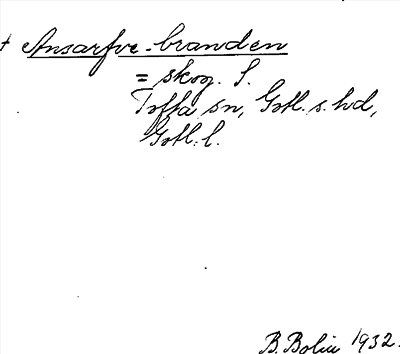 + Ansarfve-branden
= skog. S.
Toffa sn, Gotl. s. hd,
Gotl. l.
B. Bolin 1932.